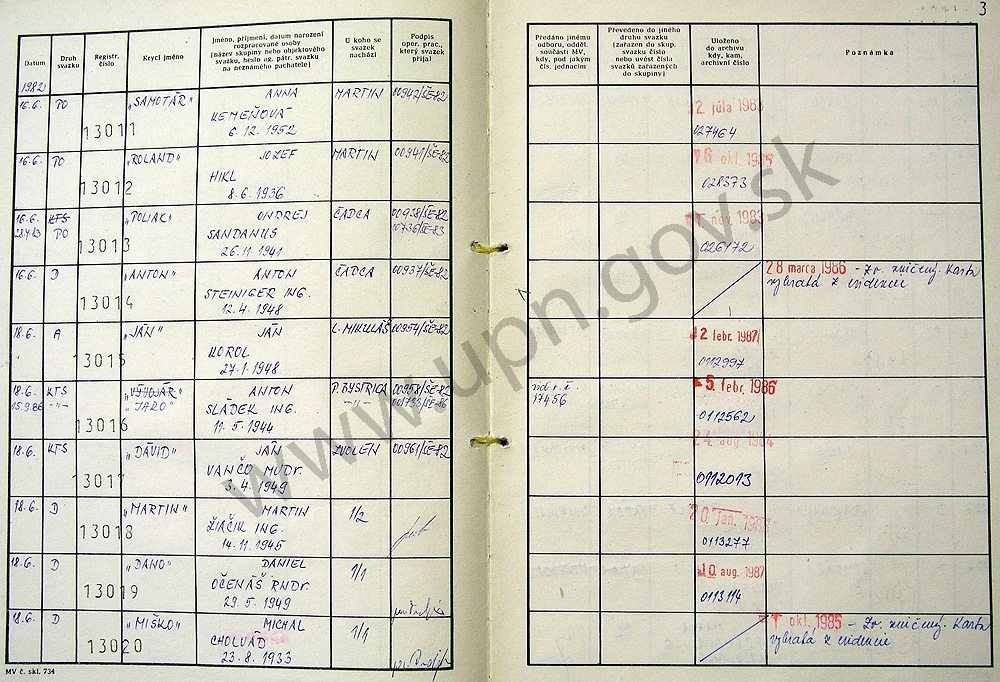 3
Datum
Druh svazku
Registr. číslo
Krycí jméno
Jméno, příjmení, datum narození rozpracované osoby (název skupiny nebo objektového svazku, heslo ag. pátr. svazku na neznámého pachatele)
U koho se svazek nachází
Podpis oper. prac., který svazek přijal
Předáno jinému odboru, odděl. součásti MV, kdy, pod jakým čís. jednacím
Převedeno do jiného druhu svazku (zařazen do skup. svazku číslo nebo uvést čísla svazků zařazených do skupiny)
Uloženo do archivu kdy, kam, archivní číslo
Poznámka
1982
16.6. PO 13011 "SAMOTÁR" ANNA MARTIN 00942/ŠE-82 2. júla 1983
KEMEŇOVÁ 027464
6.12.1952
16.6. PO 13012 "ROLAND" JOZEF MARTIN 00941/ŠE-82
HIKL 028373
8.6.1936
16.6. KTS 13013 "POLIAK" ONDREJ ČADCA 00938/ŠE-82 nov. 1983
28.4.83 PO SANDANUS 00736/ŠE-83 026172
26.11.1941
16.6. D 13014 "ANTON" ANTON ČADCA 00937/ŠE-82 28 marca 1986 - Zv. zničený. Karta
STEINIGER ING. vybratá z evidencie
12.4.1948
18.6. A 13015 "JÁN" JÁN L. MIKULÁŠ 00954/ŠE-82 12. febr. 1987
KOROL 0112997
27.1.1948
18.6. KTS 13016 "VÝVOJÁR" ANTON P. BYSTRICA 00958/ŠE-82 5. febr. 1986
15.9.86 -"- "JAZO" SLÁDEK ING. -"- 17456 0112562
11.5.1944
18.6. KTS 13017 "DÁVID" JÁN ZVOLEN 00961/ŠE-82 24. aug. 1984
VANČO MUDr. 0112013
3.4.1949
18.6. D 13018 "MARTIN" MARTIN 1/2 20. jan.
ŽIAČIK ING. 0113277
14.11.1945
18.6. D 13019 "DANO" DANIEL 1/1 10. aug. 1987
OČENÁŠ RNDr. 0113114
29.5.1949
18.6. D 13020 "MIŠKO" MICHAL 1/1 okt. 1985 - Zv. zničený. Karta
CHOLVÁD vybratá z evidencie
23.8.1933
MV č. skl. 734
www.upn.gov.sk